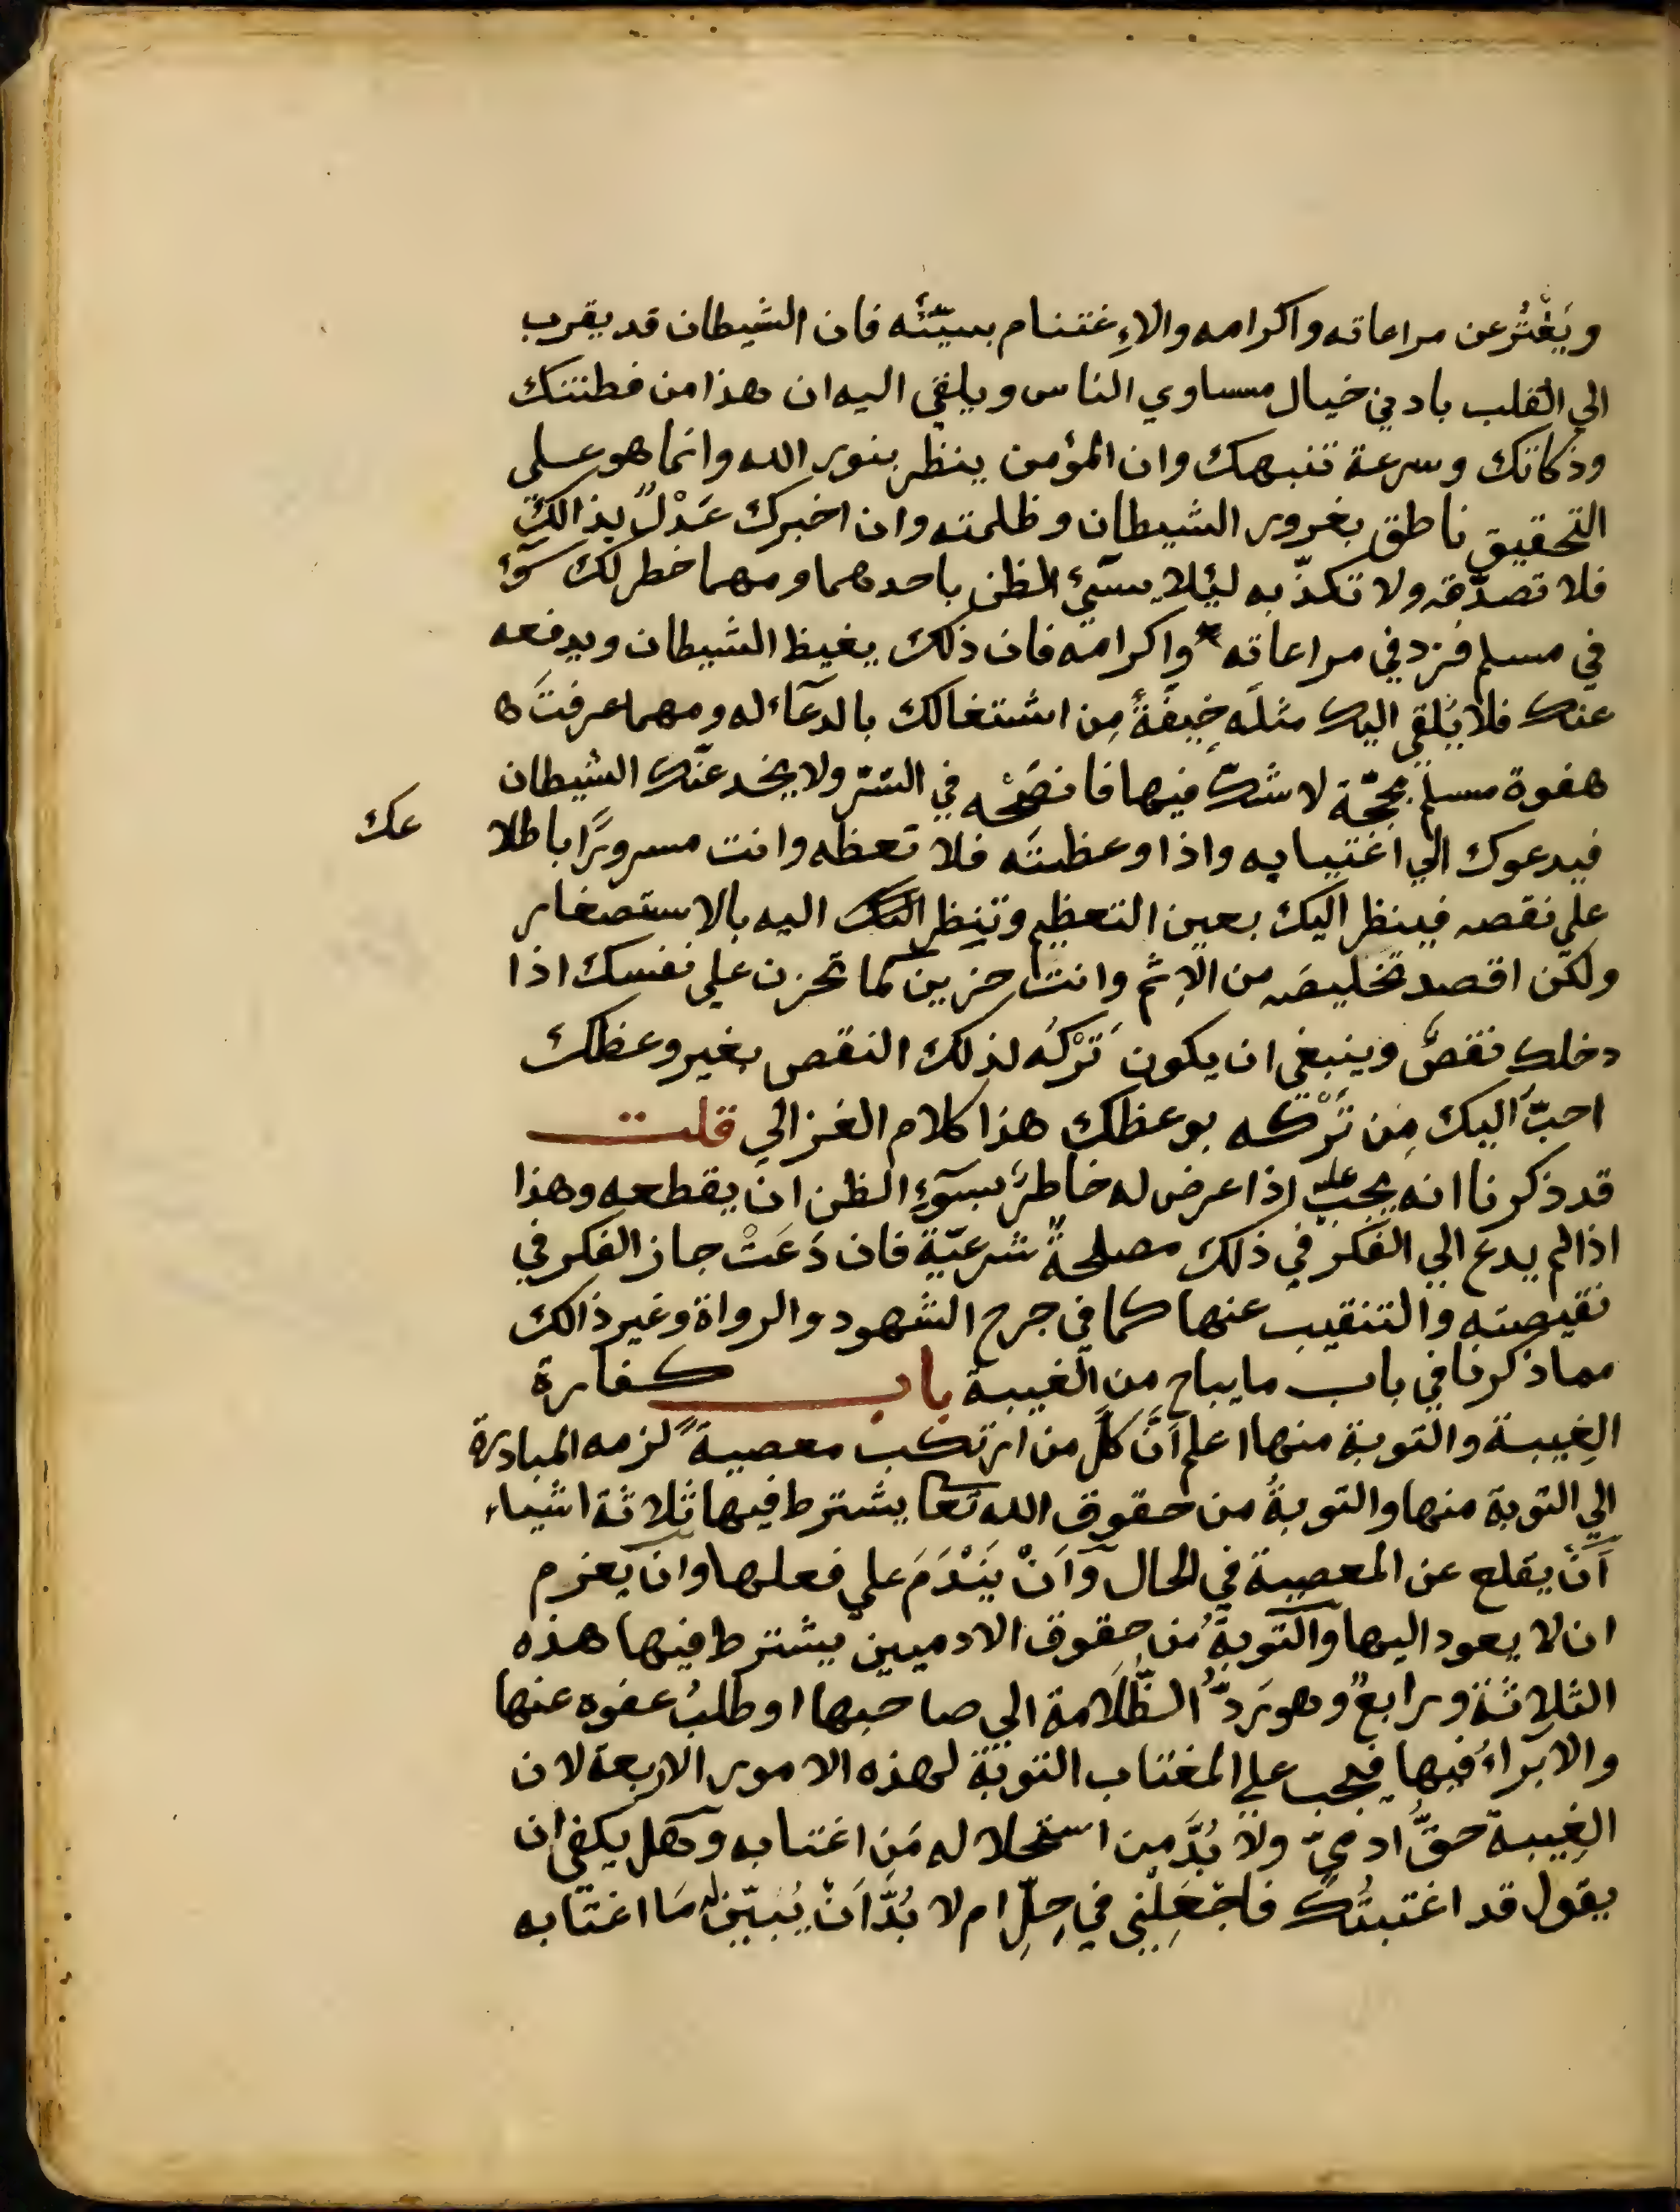 ويَفْتُر عن مراعاته واكرامه والاِغتنام بسيّئَه فان الشيطان قد يقرب
الي القلب بادني خيال مساوي الناس ويلقي اليه ان هذا من فطنتك
وذكائك وسرعة تنبهك وان المؤمن ينظر بنور الله وانما هو علي
التحقيق ناطق بغرور الشيطان وظلمته وان اخبرك عَدْلٌ بذالك
فلا تصدّقه ولا تكذّبه لئلا يسئ الظن باحدهما ومهما خطر لك سوٓء
في مسلم فزد في مراعاته واكرامه فان ذلك يغيظ الشيطان ويدفعه
عنك فلا يُلقي اليك مثلَه خِيفَةً مِن اشتغالك بالدعآء له ومهما عرفتَ
هفوة مسلم بحجّة لا شكّ فيها فانصَحْه في السّرّ ولا يخدعنّك الشيطان
فيدعوك الي اغتيابه واذا وعظتَه فلا تعظه وانت مسرورًا باطلا عك
علي نقصه فينظر اليك بعين التعظيم وتنظر اليه بالاستصغار
ولكن اقصد تخليصَه من الاِثم وانت حزين كما تحزن علي نفسك اذا
دخلك نقصٌ وينبغي ان يكون تَرْكُه لذلك النقص بغير وعظك
احبّ اليك مِن تَرْكه بوعظك هذا كلام الغزالي قلت
قد ذكرنا انه يجب عليه اذا عرض له خاطرٌ بسوٓءِ الظن ان يقطعه وهذا
اذا لم يدع الي الفكر في ذلك مصلحةٌ شرعيّة فان دَعَتْ جاز الفكر في
نقيصته والتنقيب عنها كما في جرح الشهود والرواة وغير ذالك
مما ذكرنا في باب ما يباح من الغيبة باب كفارة
الغِيبة والتوبة منها اعلم اَنّ كلّ من ارتكب معصيةً لزمه المبادرة
الي التوبة منها والتوبةُ من حقوق الله تعا يشترط فيها ثلاثة اشياء
اَنْ يقلع عن المعصية في الحال وَاَنْ يَنْدَمَ علي فعلها وان يعزم
ان لا يعود اليها والتوبةُ مِن حقوق الادميين يشترط فيها هذه
الثلاثة ورابعٌ وهو رَدُّ الظُّلَامة الي صاحبها او طلبُ عفوه عنها
والابراءُ فيها فيجب علي المغتاب التوبة لهذه الامور الاربعة لان
الغِيبة حقُّ ادميّ ولا بُدَّ مِن استحلاله مَن اغتابه وهل يكفي ان
يقول قد اغتبتُك فاجْعَلْني في حِلّ ام لا بُدَّ اَنْ يُبَيّن له مَا اغتابه